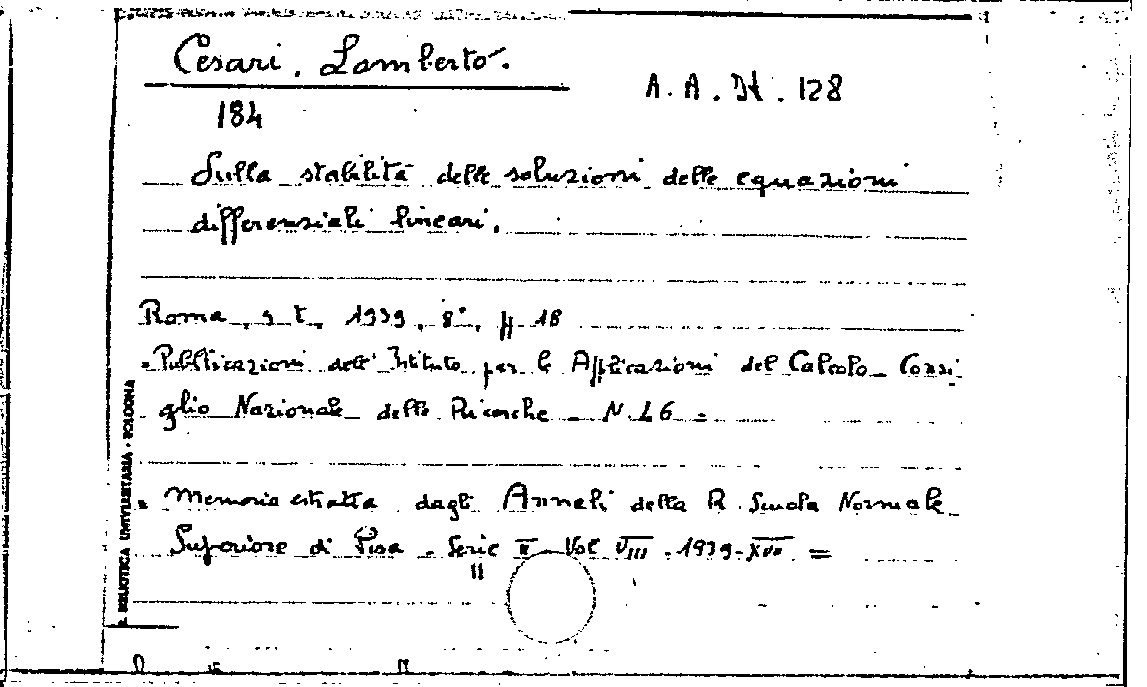 Cesari. Lamberto.
A. A. Dt. 128
184
Sulla stabilità delle soluzioni delle equazioni
differenziali lineari.
Roma, s t, 1939, 8°, pp 18
"Pubblicazioni dell'Istituto per le Applicazioni del Calcolo_ Consi-
glio Nazionale delle Ricerche _ N.
" Memoria estratta dagli Annali della R. Scuola Normale
Superiore di Pisa - Serie II_ Vol VIII. 1939-XVII =
II
R. BIBLIOTECA UNIVERSITARIA - BOLOGNA